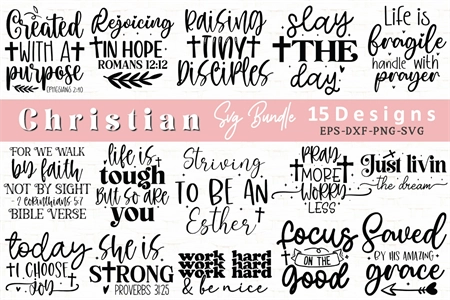 Created
WITH A
purpose
EPHESIANS 2:10
Rejoicing
IN HOPE
ROMANS 12:12
RAISING
TINY
Disciples
slay
THE
day
Life is
fragile
handle with
prayer
Christian Svg Bundle 15 Designs
EPS-DXF-PNG-SVG
FOR WE WALK
by faith
NOT BY SIGHT
2 CORINTHIANS 5:7
BIBLE VERSE
life is
tough
But so are
you
Striving
TO BE AN
Esther
PRAY
MORE
WORRY
LESS
Just livin
the dream
today
I CHOOSE
joy
she is
STRONG
PROVERBS 31:25
work hard
work hard
work hard
& be nice
focus
ON THE
good
Saved
BY HIS AMAZING
grace